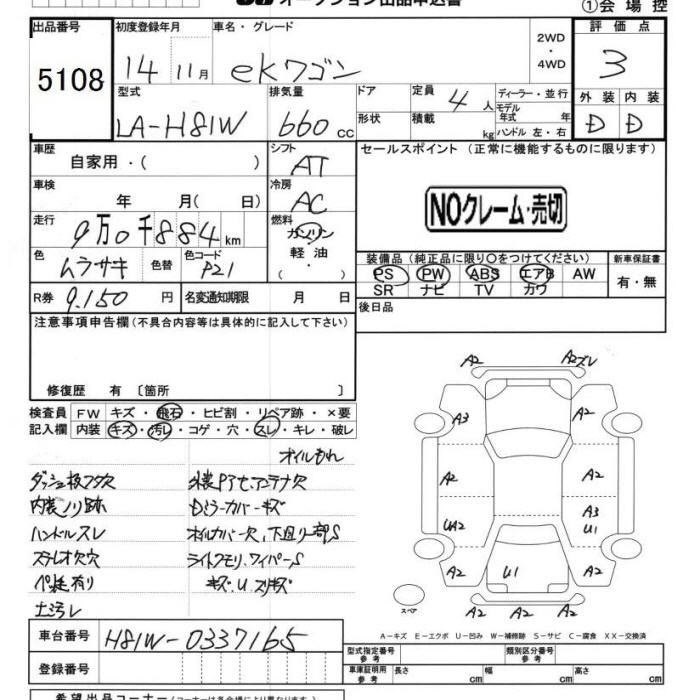 オークション出品申込書
①会場控
出品番号 初度登録年月 車名・グレード 2WD ・ 4WD 評価点
5108 14 11月 eKワゴン 3
型式 排気量 ドア 定員 4 人 ディーラー・並行 外装 内装
LA-H81W 660 cc 形状 積載 kg モデル年式 年 ハンドル 左・右 D D
車歴 自家用・( ) シフト AT セールスポイント (正常に機能するものに限ります)
車検 年 月( 日) 冷房 AC
NOクレーム・売切
走行 9万0千884km 燃料 ガソリン 軽油 ・( )
色 ムラサキ 色替 色コード P21
装備品 (純正品に限り○をつけてください) 新車保証書
PS PW ABS エアB AW 有・無
SR ナビ TV カワ
R券 9.150 円 名変通知期限 月 日 後日品
注意事項申告欄 (不具合内容等は具体的に記入して下さい)
修復歴 有 〔箇所 〕
検査員記入欄 FW キズ・飛石・ヒビ割・リペア跡・×要
内装 キズ・汚レ・コゲ・穴・スレ・キレ・破レ
オイルもれ
ダッシュ板フタ欠 外装Pアセアンテナ欠
内装ノリ跡 Dミラーカバーキズ
ハンドルスレ オイルカバー欠、下廻り一部S
ステレオ欠穴 ライトクモリ、ワイパーS
ペ耗有り キズ、U、スリキズ
土汚レ
A2 A2ズレ
A3 A2
A2 A2
A3
UA2 U1
A2 U1 A2
A2 A2
スペア
A-キズ E-エクボ U-凹み W-補修跡 S-サビ C-腐食 XX-交換済
車台番号 H81W-0337165
登録番号
型式指定番号 参考 類別区分番号 参考
車庫証明用 参考 長さ cm 幅 cm 高さ cm
希望出品コーナー